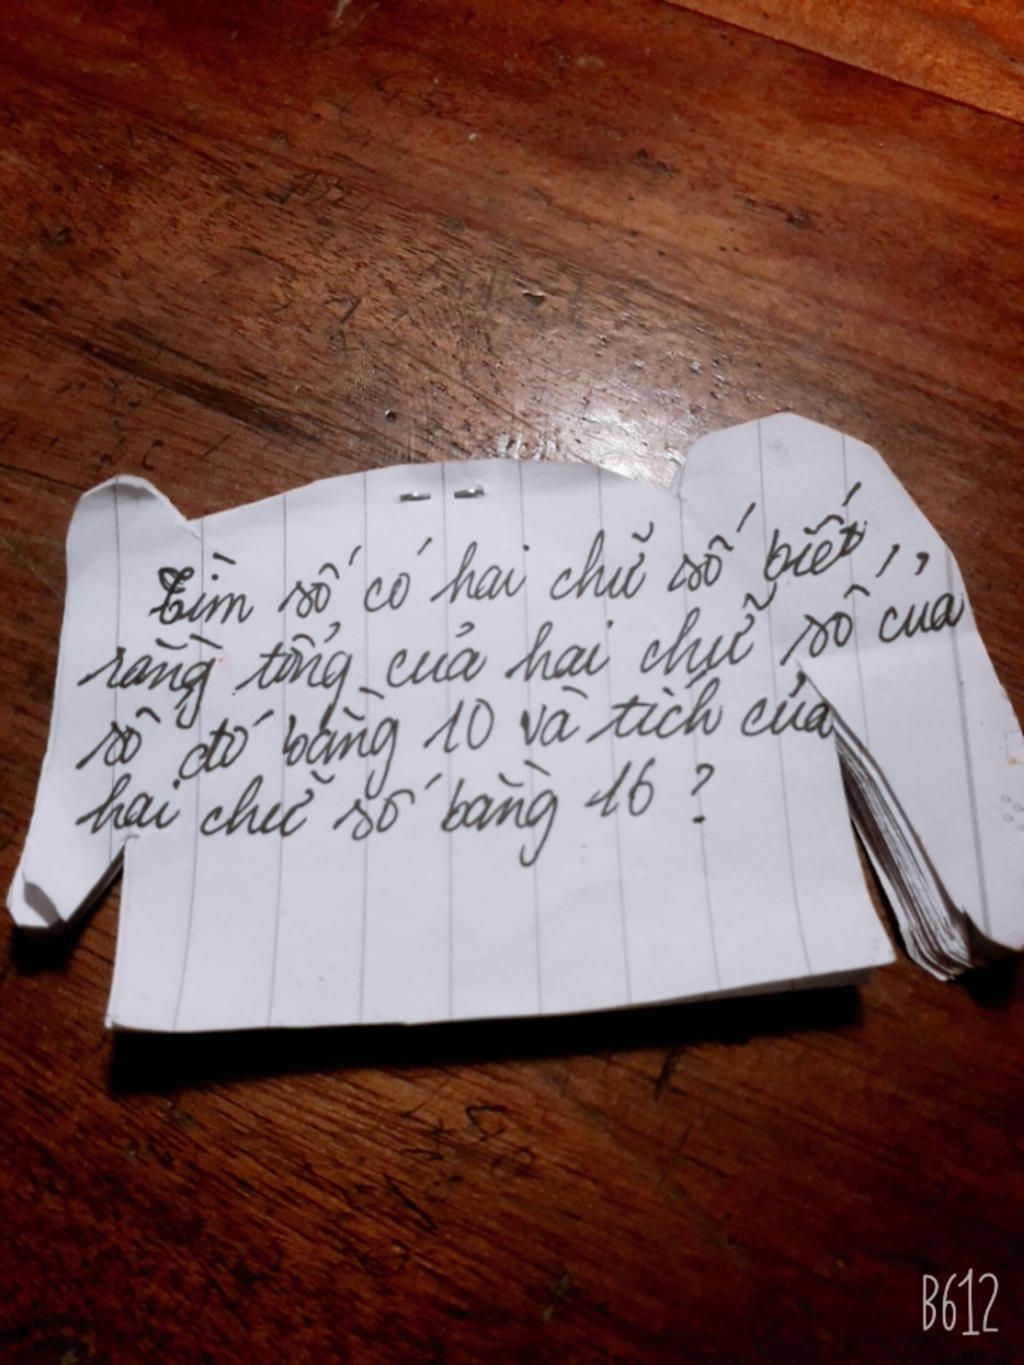 Tìm số có hai chữ số biết,
rằng tổng của hai chữ số của
số đó bằng 10 và tích của
hai chữ số bằng 16 ?
B612